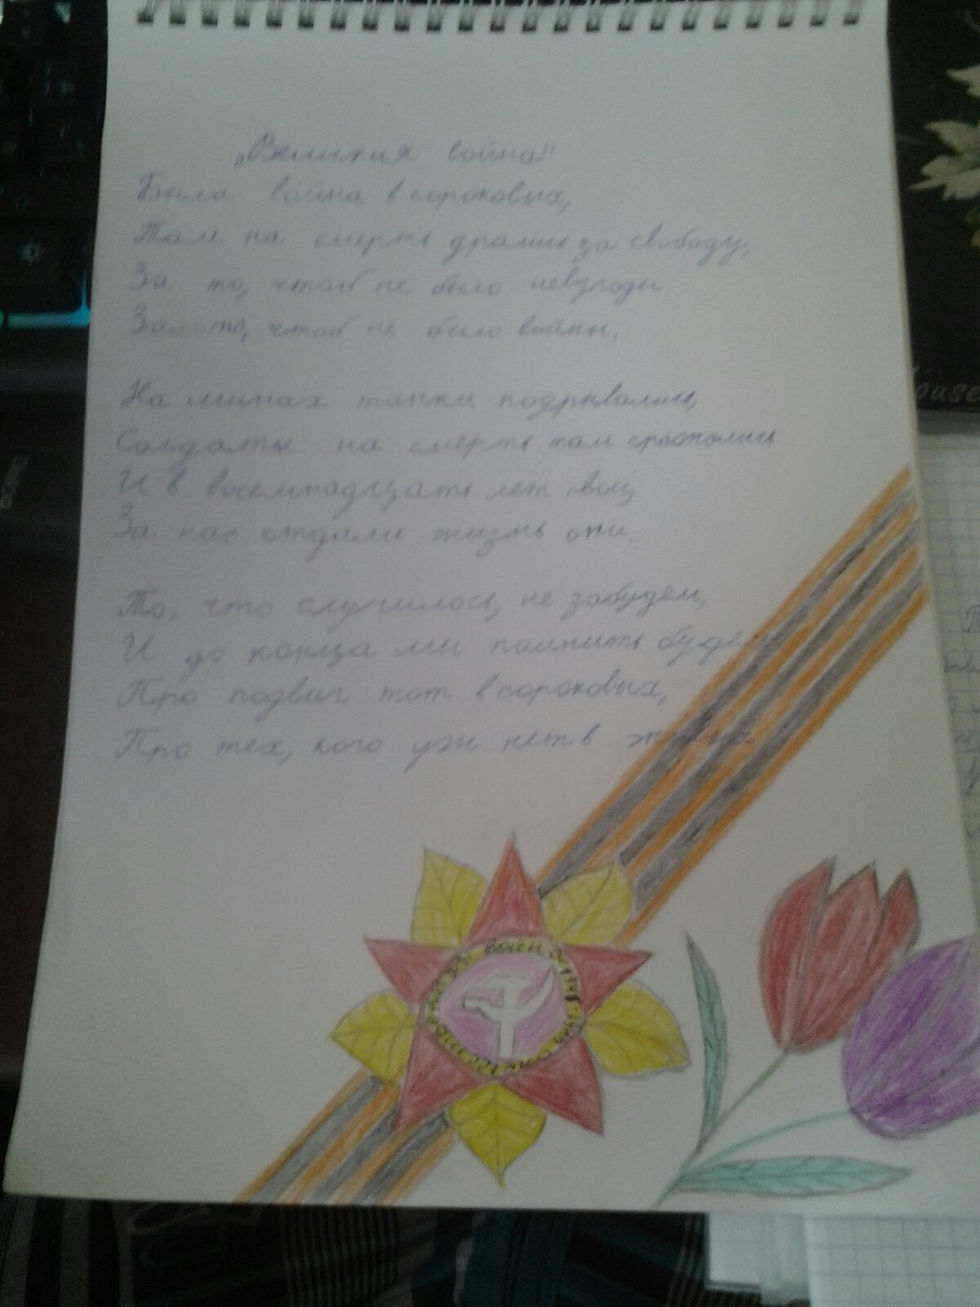 „Великая война"
Была война в сороковых,
Там на смерть дрались за свободу,
За то, чтоб не было невзгоды
За то, чтоб не было войны.
На минах танки подрывались,
Солдаты на смерть там сражались
И в восемнадцать лет свои,
За нас отдали жизнь они.
То, что случилось, не забудем,
И до конца мы помнить будем
Про подвиг тот в сороковых,
Про тех, кого уж нет в живых
война